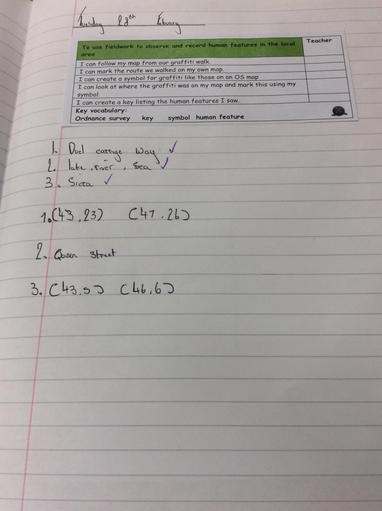 Tuesday
Teacher
To use fieldwork to observe and record human features in the local area
I can follow my map from our graffiti walk.
I can mark the route we walked on my own map.
I can create a symbol for graffiti like those on an OS map
I can look at where the graffiti was on my map and mark this using my
symbol.
I can create a key listing the human features I saw.
Key vocabulary:
Ordnance survey key symbol human feature
1. Duel carrige Way
2. lake, river, Sea
3.
1. (43,23) (47,26)
2. Queen Street
3. (43,5) (46,6)